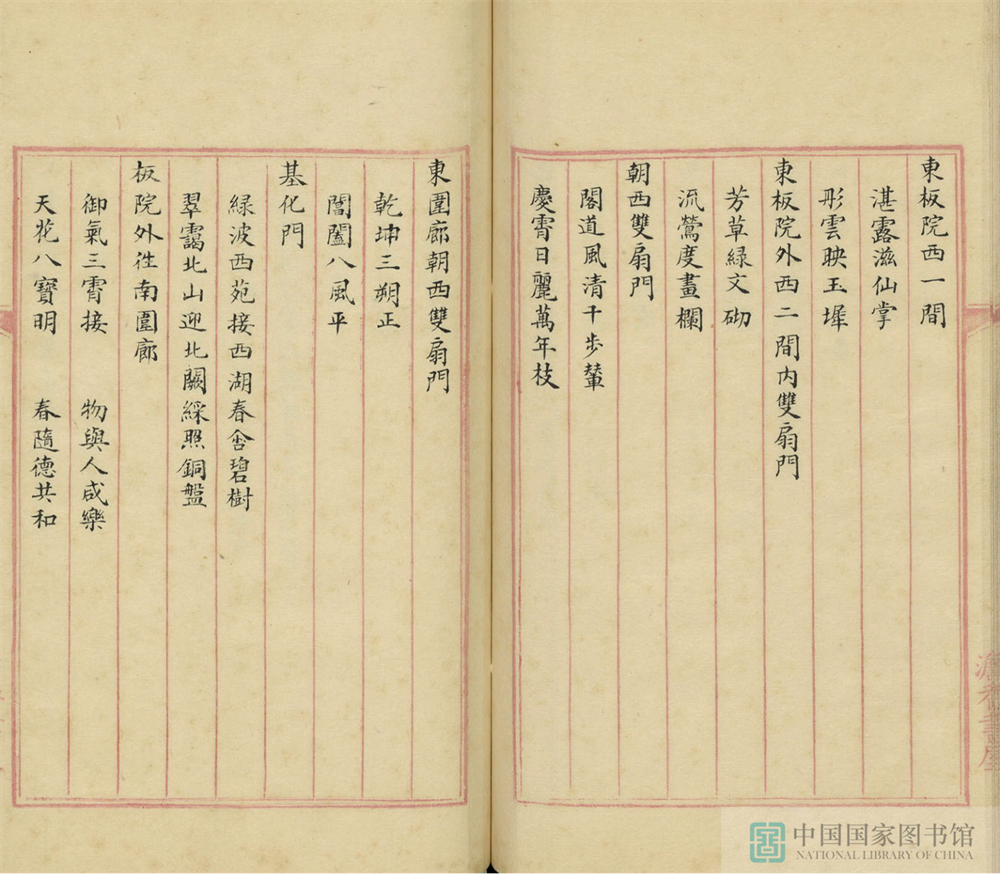 東板院西一間
湛露滋仙掌
彤雲映玉墀
東板院外西二間內雙扇門
芳草綠文砌
流鶯度畫欄
朝西雙扇門
閣道風清千步輦
慶霄日麗萬年枝
東圍廊朝西雙扇門
乾坤三朔正
閶闔八風平
基化門
綠波西苑接西湖春含碧樹
翠靄北山迎北闕綵照銅盤
板院外往南圍廊
御氣三霄接 物與人咸樂
天花八寶明 春隨德共和
中国国家图书馆
NATIONAL LIBRARY OF CHINA